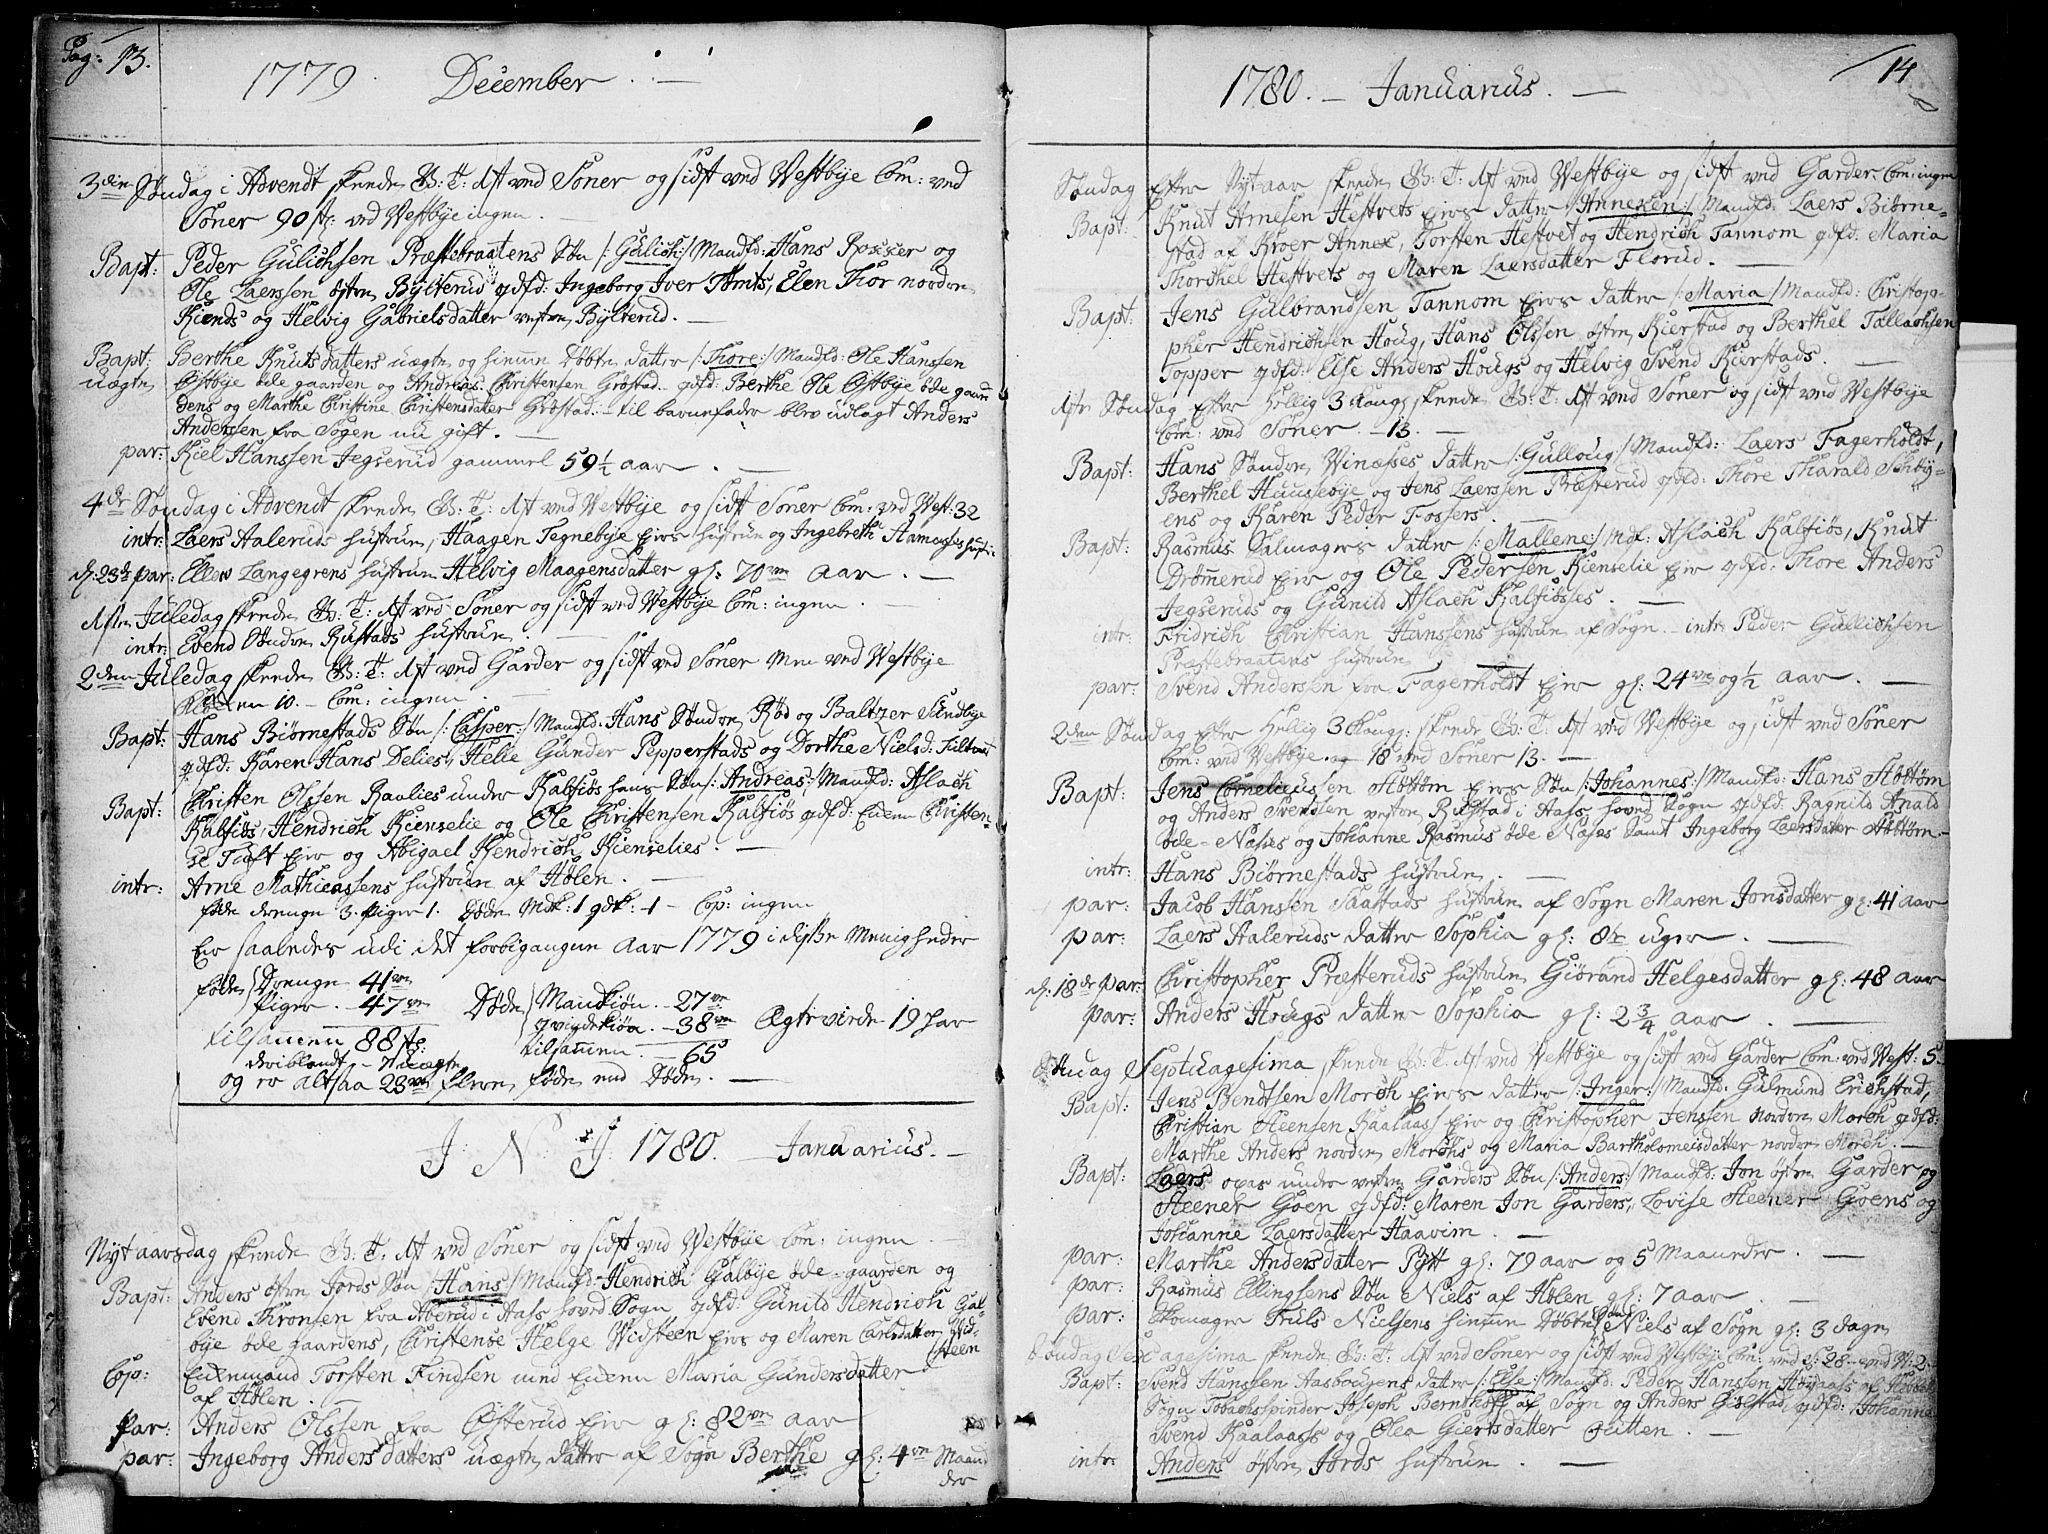 Pag: 13.
1779. December.
3die Søndag i Advendt skeede G: T: Aft ved Soner og sidst ved Westbye Com: ved
Soner 90 st: ved Westbye ingen.
Bapt: Peder Gulichsen Præstebraatens Søn /:Gulich:/ Mandfd: Hans Rosser og
Ole Laerssen østre Bylterud qdfd: Ingeborg Iver Tomts, Elen Thor nordre
Kiends og Helvig Gabrielsdatter vestre Bylterud.
Bapt: Berthe Knutsdatters uægte og hiemme døbte datter /:Thore:/ Mandfd: Ole Hanssen
uægte Østbye øde gaarden og Andreas Christensen Grøstad. qdfd: Berthe Ole Østbye øde gaar
dens og Marthe Christine Christensdatter Grøstad. til barnefader blev udlagt Anders
Andersen fra Sogen nu gift.
par: Kiel Hanssen Jegserud gammel 59 1/2 aar.
4de Søndag i Advendt skeede G: T: Aft ved Westbye og sidst Soner Com: ved West: 32
intr: Laers Aaleruds hustrue, Haagen Tegnebye Eies hustrue og Ingebreth
d: 23de par: Ellev Langegrens hustrue Helvig Maagensdatter gl: 70ve Aar.
1ste Juledag skeede G: T: Aft ved Soner og sidst ved Westbye Com: ingen.
intr: Evend Søndre Rustads hustrue.
2den Juledag skeede G: T: Aft ved Garder og sidst ved Soner men ved Westbye
Klokken 10. Com: ingen.
Bapt: Hans Biørnestads Søn /:Casper:/ Mandfd: Hans Søndre Rød og Baltzer Sundbye
qdfd: Karen Hans Delies, Helle Gunder Pepperstads og Dorthe Nielsd:
Bapt: Christen Olssen Raalies under Kalsiøs hans Søn /:Andreas:/ Mandfd: Aslach
Kalsiøs, Hendrich Kienselie og Ole Christensen Kalsiøs qdfd: Enken Christen-
se Toft Eie og Abigael Hendrich Kienselies.
intr: Arne Mathieassens hustrue af Hølen.
føde drenge 3. Piger 1. Døde Mdk: 1 qdk: 1 Cop: ingen
Er saaledes udi det forbigangne Aar 1779 i disse Menigheder
føde Drenge 41ve
Piger 47ve Døde Mandkiøn 27ve
Qvindekiøn 38ve Ægtevirde 19 Par
tilsamen 88 st: tilsamen 65
deriblandt 7 uægte
og er altsaa 23ve flere føde end Døde.
J: N: J: 1780. Januarius.
Nyt aarsdag skeede G: T: Aft ved Soner og sidst ved Westbye Com: ingen
Bapt: Anders østre Jords Søn /:Hans:/ Mandfd: Hendrich Galbye øde gaarden og
Evend Thronsen fra Aberud i Aass hoved Sogn qdfd: Gunild Hendrich Gal-
bye øde gaardens, Christense Helge Widsteen Eies og Maren Carlsdatter Wid-
steen
Cop: Enkemand Torsten Findsen med Enken Maria Gundersdatter
af Hølen.
Par: Anders Olssen fra Østerud Eie gl: 82ve aar
par: Ingeborg Andersdatters uægte datter af Sogn Berthe gl: 4ve Maane
der
14
1780. Januarius.
Søndag Efter Nytaar skeede G: T: Aft ved Westbye og sidst ved Garder Com: ingen
Bapt: Knut Arnesen Hestvets Eies datter /:Annexen:/ Mandfd: Laers Biørne-
stad af Kroer Annex, Torsten Hestvet og Hendrich Tannom qdfd: Maria
Thorthel Hestvets og Maren Laersdatter Florud.
Bapt: Jens Gulbrandsen Tannom Eies datter /:Maria:/ Mandfd: Christop-
pher Hendrichsen Houg, Hans Olssen østre Kierstad og Berthel Tallachsen
Topper qdfd: Else Anders Hougs og Helvig Svend Kierstads.
1ste Søndag Efter Hellig 3 Kong: skeede G: T: Aft ved Soner og sidst ved Westbye
Com: ved Soner 13.
Bapt: Hans Søndre Winæsses datter /:Gulloug:/ Mandfd: Laers Fagerholdt,
Berthel Huusebye og Jens Laerssen Præsterud qdfd: Thore Tharald Schby-
ens og Karen Peder Fossers.
Bapt: Rasmus Salmagers datter /:Mallene:/ Mdf: Aslach Kalsiøs, Knut
Drømerud Eie og Ole Pedersen Kienselie Eie qdfd: Thore Anders
Jegseruds og Gunild Aslach Kalsiøsses.
intr: Fridrich Christian Hanssens hustrue af Sogn. intr: Peder Gullichsen
Præstebraatens hustrue
par: Svend Andersen fra Fagerholdt Eie gl: 24ve og 1/2 Aar.
2den Søndag efter Hellig 3 Kong: skeede G: T: Aft ved Westbye og sidst ved Soner
Com: ved Westbye 18 ved Soner 13.
Bapt: Jens Corneliussen Høstøm Eies Søn /:Johannes:/ Mandfd: Hans Høstøm
og Anders Svendsen vestre Rustad i Aass hoved Sogn qdfd: Ragnild Anald
øde Næses og Johanne Rasmus øde Næses samt Ingeborg Laersdatter Høstøm.
intr: Hans Biørnestads hustrue.
par: Jacob Hanssen Saastads hustrue af Sogn Maren Jonsdatter gl: 41 aar
par: Laers Aaleruds datter Sophia gl: 8te uger.
d: 18de par: Christopher Præsteruds hustrue Giørand Helgesdatter gl: 48 aar
par: Anders Hougs datter Sophia gl: 2 3/4 aar.
Søndag Septuagesima skeede G: T: Aft ved Westbye og sidst ved Garder Com: ved West: 5.
Bapt: Jens Bendtsen Morch Eies datter /:Inger:/ Mandfd: Gulmund Erichstad,
Christian Steensen Raalaas Eie og Christopher Jenssen nordre Morch qdfd:
Marthe Anders nordre Morchs og Maria Bartholomeisdatter nordre Morch.
Bapt: Laers opas under vestre Garders Søn /:Anders:/ Mandfd: Jon østre Garder og
Steener Goen qdfd: Maren Jon Garders, Lovise Steener Goens og
Johanne Laersdatter Haavim.
par: Marthe Andersdatter Pytt gl: 79 aar og 5 Maaneder.
par: Rasmus Ellingsens Søn Niels af Hølen gl: 7 aar.
par: Skomager Truls Nielsens hiemme døbte Søn Niels af Sogn gl: 3 dage
Søndag Sexagesima skeede G: T: Aft ved Soner og sidst ved Westbye Com: ved S: 28 ved W: 2
Bapt: Svend Hanssen Aasbougens datter /:Else:/ Mandfd: Peder Hanssen Høyaass af
Sogn Tobachsspinder Joseph Bernthoff af Sogn og Anders Gislestad, qdfd: Johanne
Svend Raalaass og Olea Giertsdatter Qvitten.
intr Anders østre Jords hustrue.